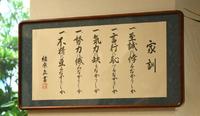 家訓
一至誠に悖るなかりしか
一言行に恥づるなかりしか
一気力に缺くるなかりしか
一努力に憾みなかりしか
一不精に亘るなかりしか